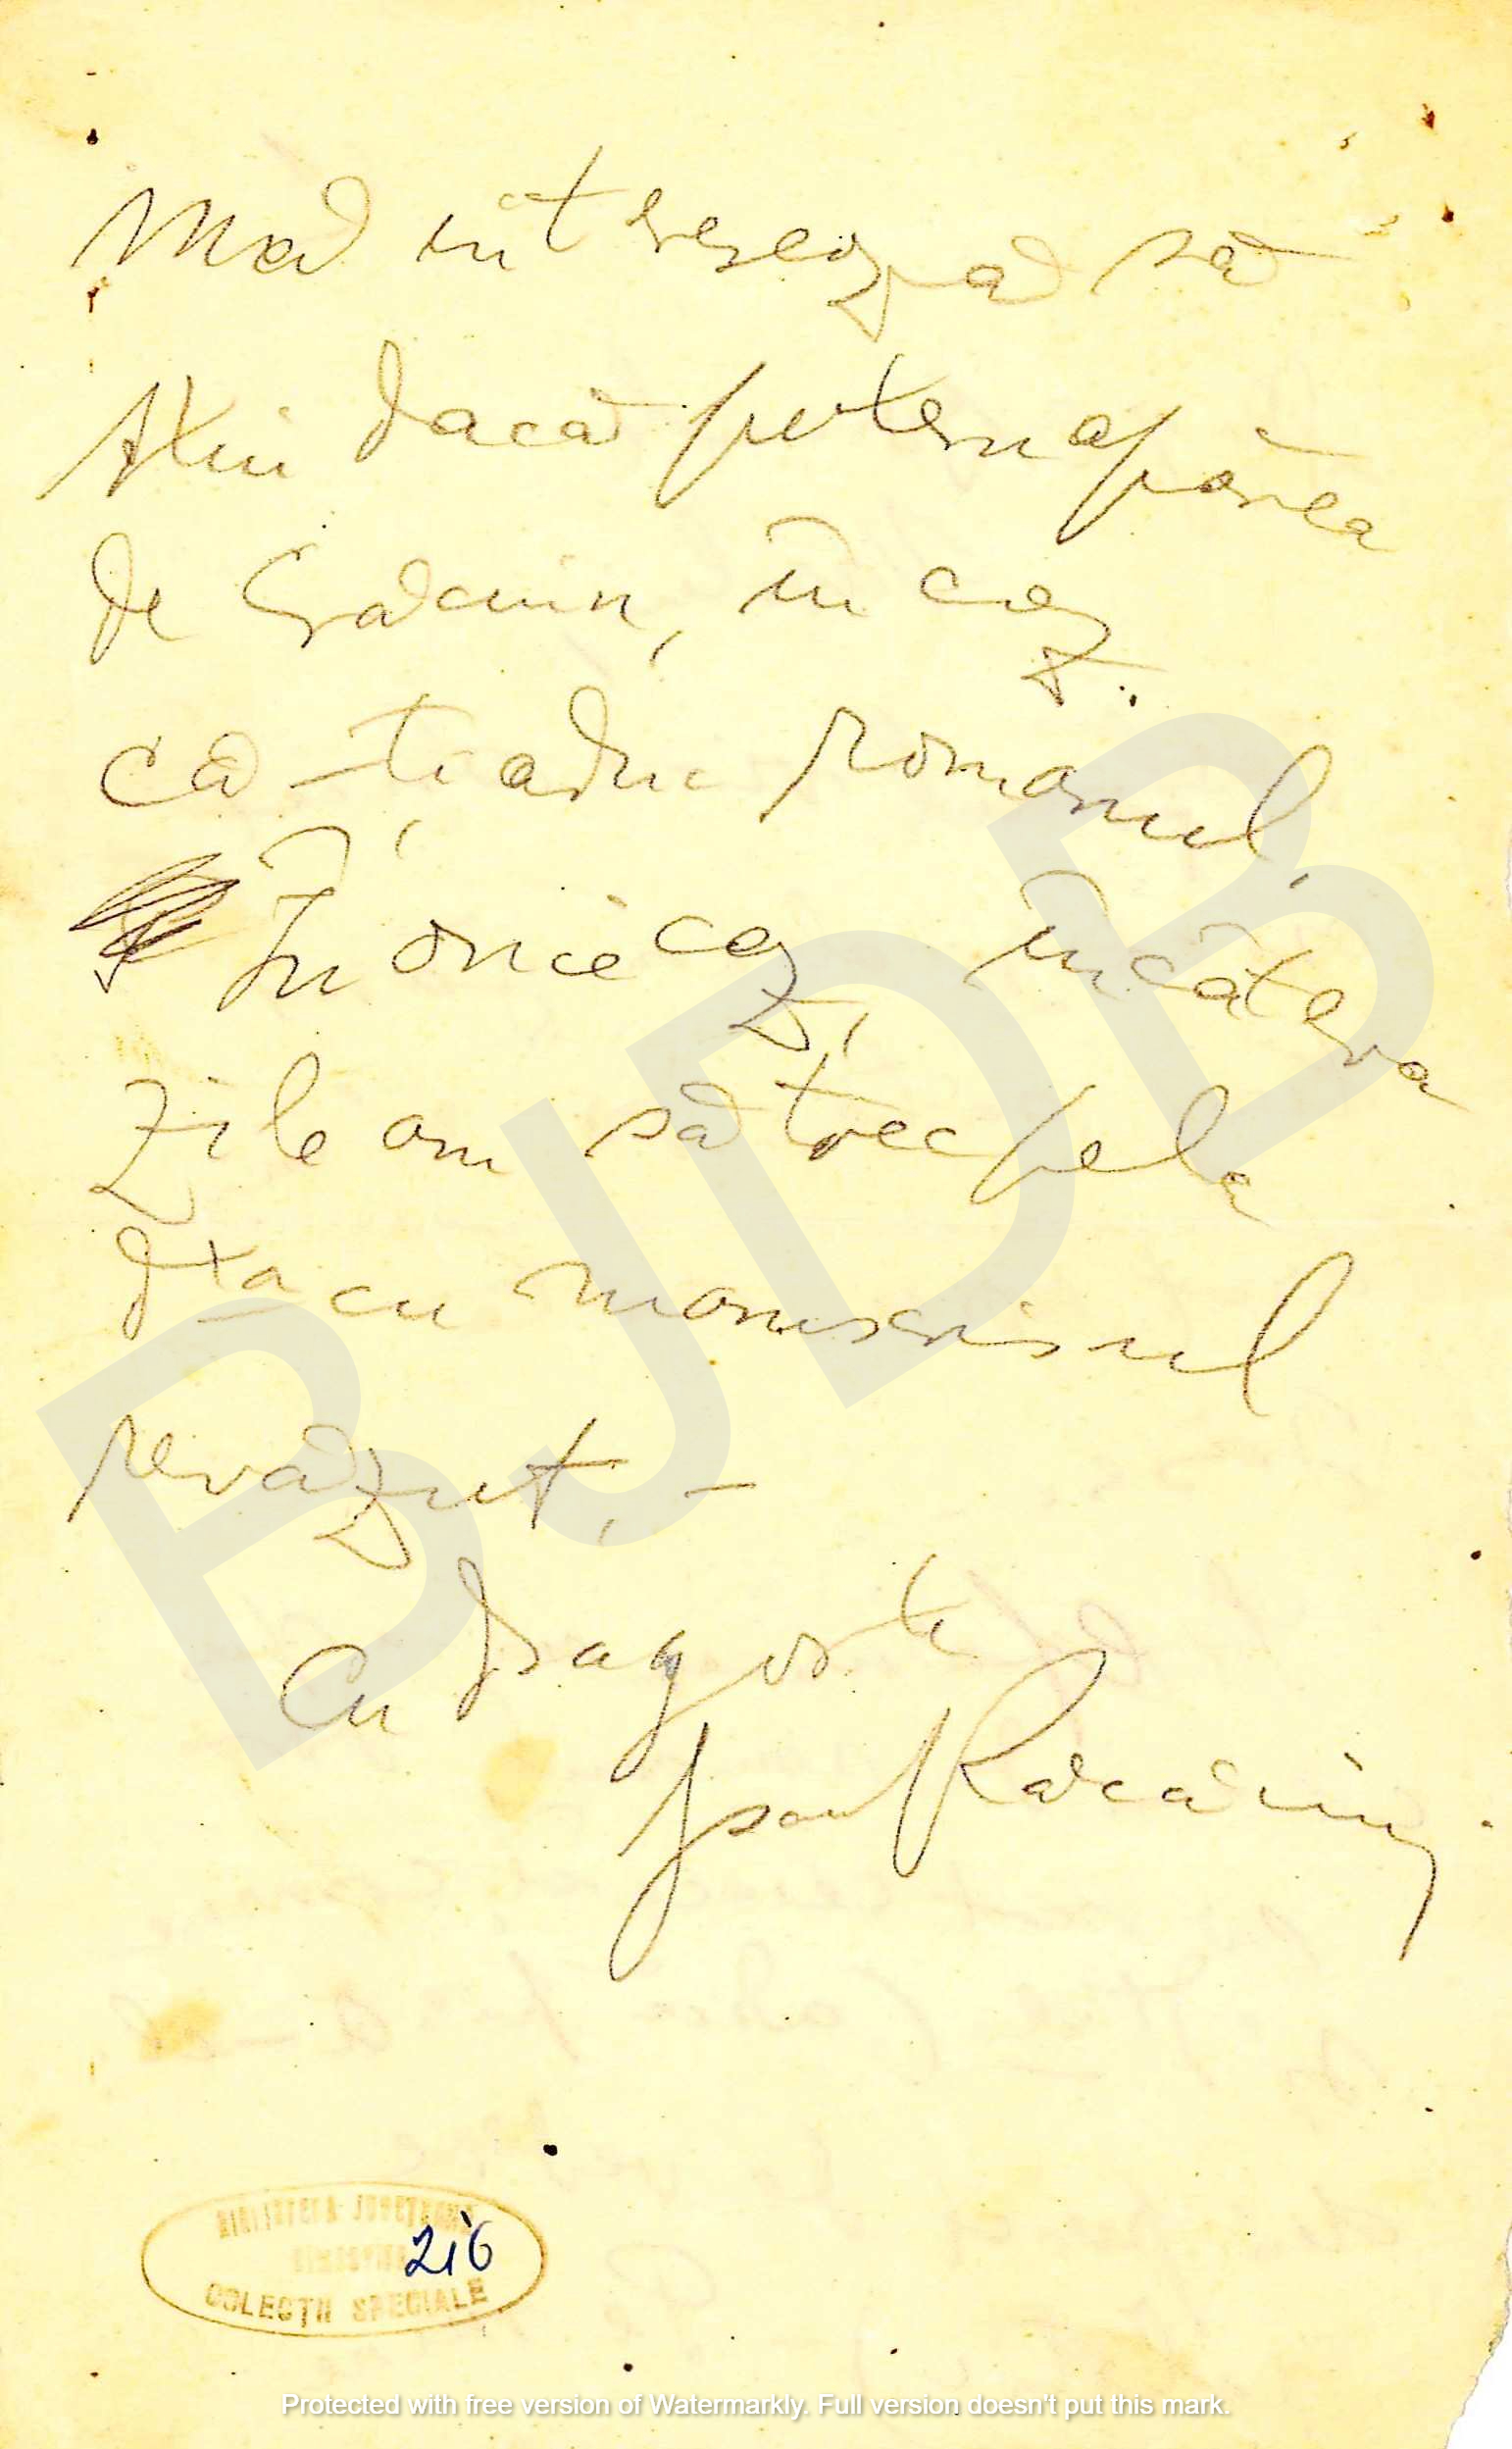 Mă interesează să
știu dacă putem apărea
de Crăciun, în caz
că-ți aduc romanul.
În orice caz, în câteva
zile am să trec pe la
d-ta cu manuscrisul
revăzut. –
Cu dragoste
BJDB
BIBLIOTECA JUDEȚEANĂ
DÂMBOVIȚA
216
COLECȚII SPECIALE
Protected with free version of Watermarkly. Full version doesn't put this mark.